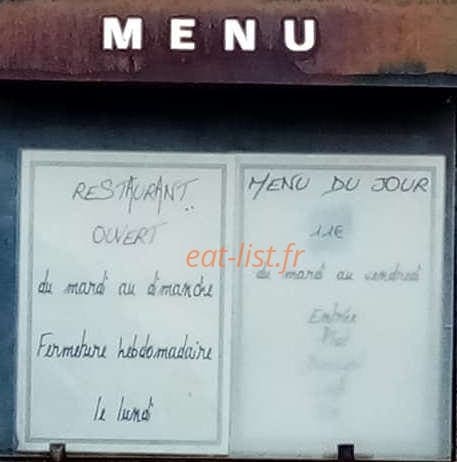 MENU
RESTAURANT
OUVERT
du mardi au dimanche
Fermeture hebdomadaire
le lundi
MENU DU JOUR
11€
eat-list.fr
du mardi au vendredi
Entrée
Plat